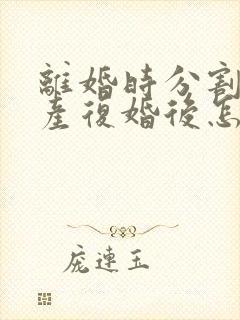 離婚時分割
産復婚後怎
庞連玉